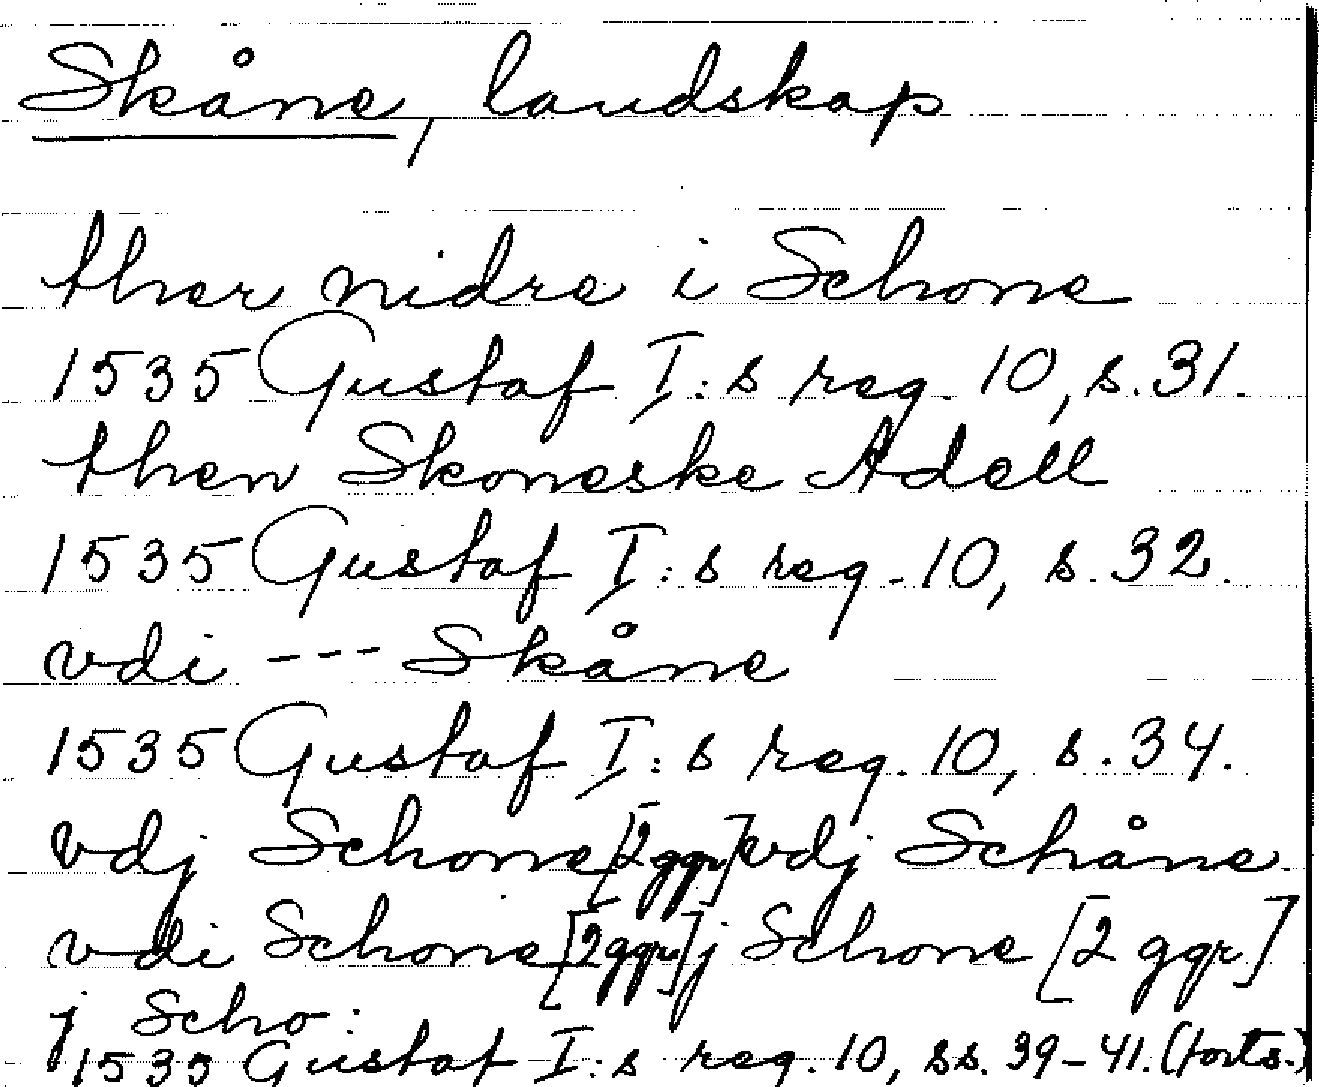 Skåne, landskap
ther nidre i Schone
1535 Gustaf I:s reg. 10, s. 31.
then Skoneske Adell
1535 Gustaf I:s reg. 10, s. 32.
vdi --- Skåne
1535 Gustaf I:s reg. 10, s. 34.
vdj Schone [2 ggr] vdj Schåne.
vdi Schone [2 ggr] j Schone [2 ggr]
j Scho:
1535 Gustaf I:s reg. 10, ss. 39-41. (forts.)